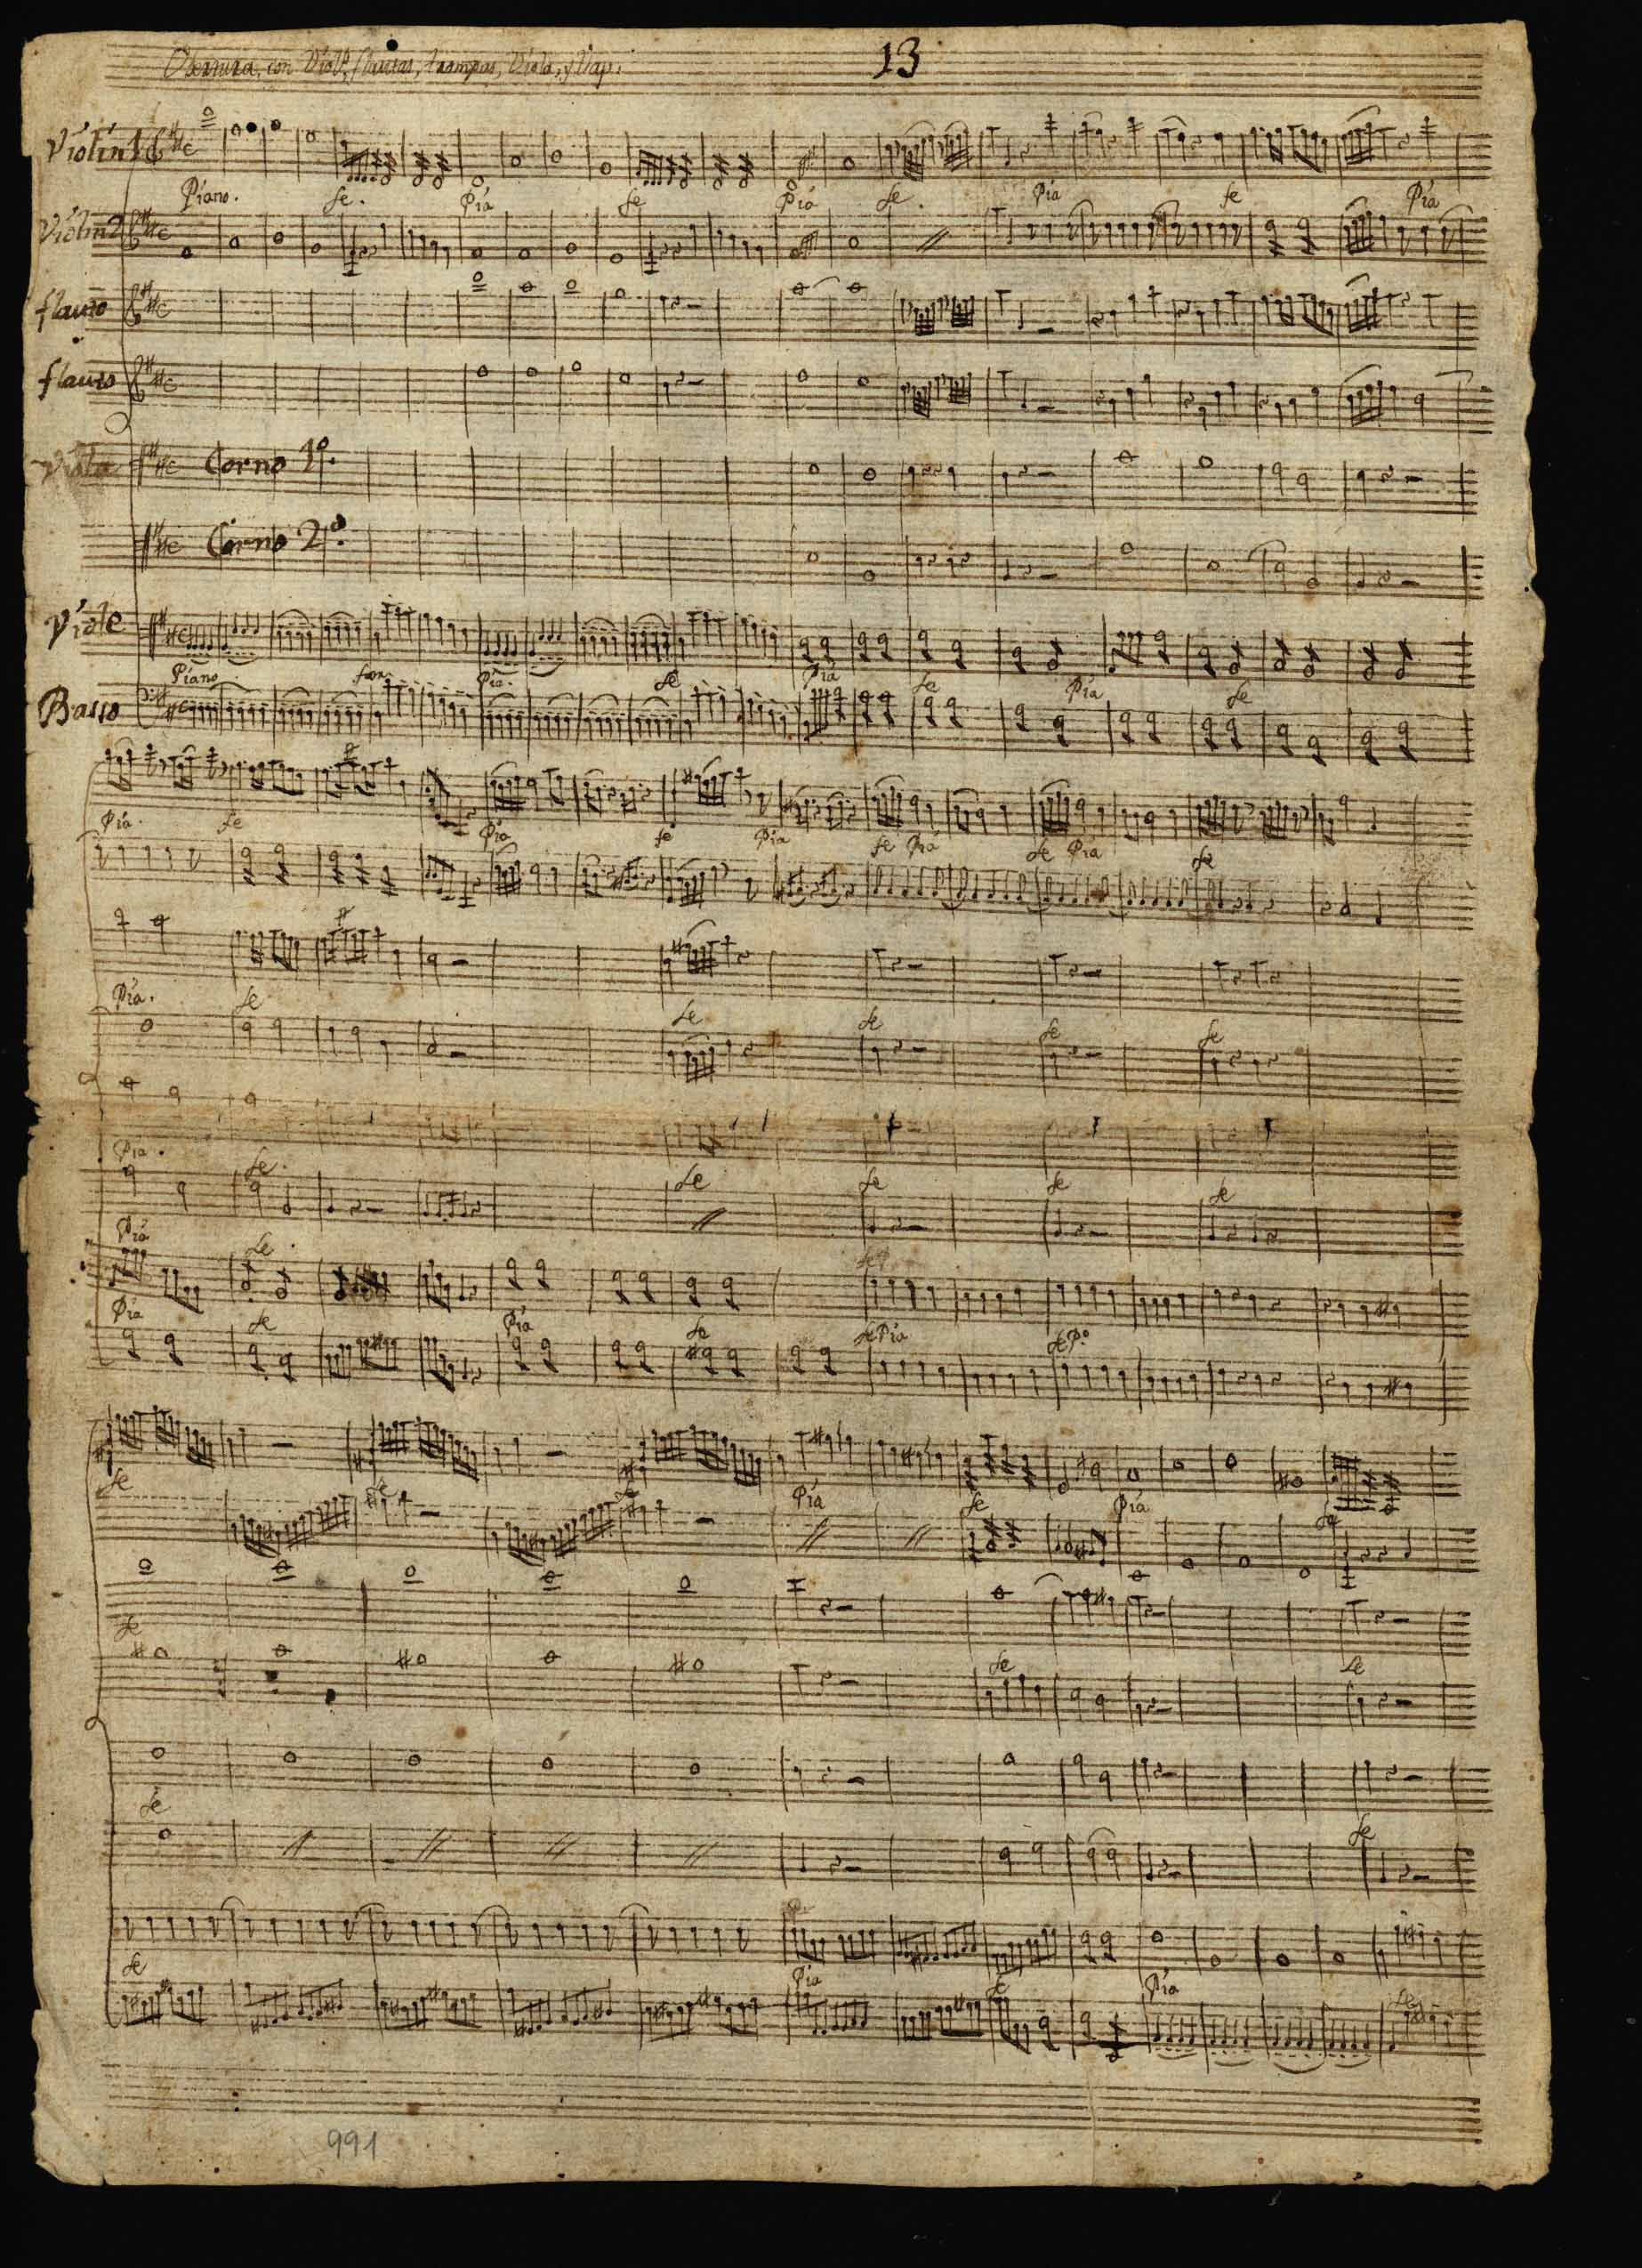 Obertura, con Viol.s, flautas, trompas, Viola, y Bap.
13
Violin 1
Piano. fe. Pia fe Pia fe. Pia fe Pia
Violin 2
flauto
flauto
Viola Corno 1º.
Corno 2º.
Viole
Piano for. Pia. fe Pia fe Pia fe
Basso
Pia. fe Pia fe Pia fe Pia fe Pia fe
Pia. fe fe fe fe fe
Pia. fe. fe fe fe fe
Pia fe.
Pia fe Pia fe fe Pia fe Pº
fe fe fe Pia fe Pia fe
fe fe fe
fe fe
fe Pia fe Pia fe
991